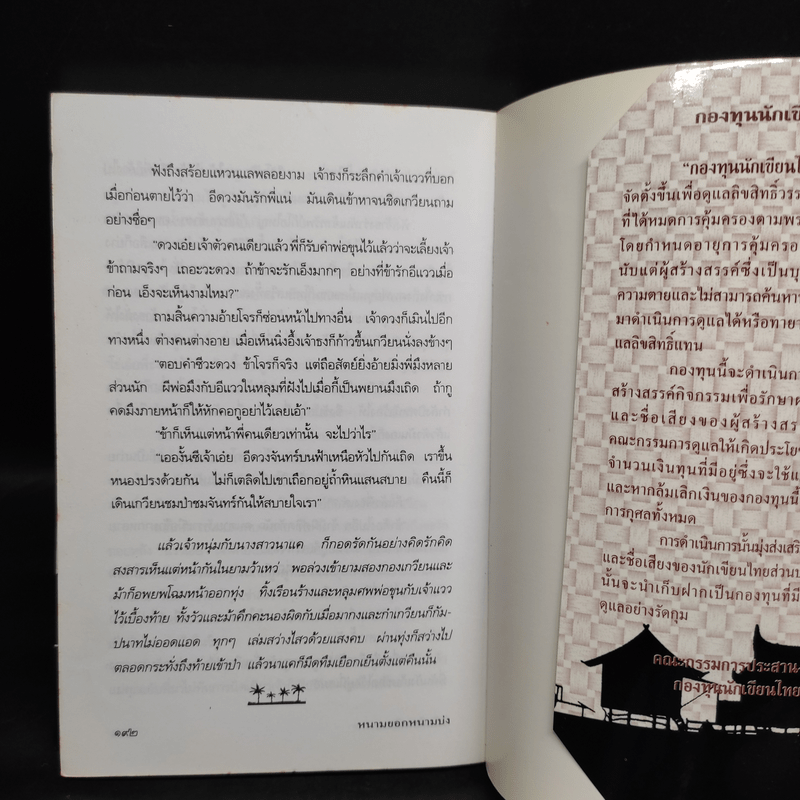 ฟังถึงสร้อยแหวนแลพลอยงาม เจ้าธงก็ระลึกคำเจ้าแววที่บอก
เมื่อก่อนตายไว้ว่า อีดวงมันรักพี่แน่ มันเดินเข้าหาจนชิดเกวียนถาม
อย่างซื่อๆ
“ดวงเอ๋ย เจ้าตัวคนเดียวแล้ว พี่ก็รับคำพ่อขุนไว้แล้วว่าจะเลี้ยงเจ้า
ข้าถามจริงๆ เถอะวะดวง ถ้าข้าจะรักเอ็งมากๆ อย่างที่ข้ารักอีแววเมื่อ
ก่อน เอ็งจะเห็นงามไหม?”
ถามสิ้นความอ้ายโจรก็ซ่อนหน้าไปทางอื่น เจ้าดวงก็เมินไปอีก
ทางหนึ่ง ต่างคนต่างอาย เมื่อเห็นนิ่งอึ้งเจ้าธงก็ก้าวขึ้นเกวียนนั่งลงข้างๆ
“ตอบคำซีวะดวง ข้าโจรก็จริง แต่ถือสัตย์ยิ่งอ้ายมิ่งพี่มึงหลาย
ส่วนนัก ผีพ่อมึงกับอีแววในหลุมที่ฝังไปเมื่อกี้เป็นพยานมึงเถิด ถ้ากู
คดมึงภายหน้าก็ให้หักคอกูอย่าไว้เลยเอ้า”
“ข้าก็เห็นแต่หน้าพี่คนเดียวเท่านั้น จะไปว่าไร”
“เอองั้นซีเจ้าเอ๋ย อีดวงจันทร์บนฟ้าเหนือหัวไปกันเถิด เราขึ้น
หนองปรงด้วยกัน ไม่ก็เตลิดไปเขาเถือกอยู่ถ้ำหินแสนสบาย คืนนี้ก็
เดินเกวียนชมป่าชมจันทร์กันให้สบายใจเรา”
แล้วเจ้าหนุ่มกับนางสาวนาแค ก็กอดรัดกันอย่างคิดรักคิด
สงสารเห็นแต่หน้ากันในยามว้าเหว่ พอล่วงเข้ายามสองกองเกวียนและ
ม้าก็อพยพโฉมหน้าออกทุ่ง ทิ้งเรือนร้างและหลุมศพพ่อขุนกับเจ้าแวว
ไว้เบื้องท้าย ทั้งวัวและม้าคึกคะนองผิดกับเมื่อมากงและกำเกวียนก็กัม-
ปนาทไม่ออดแอด ทุกๆ เล่มสว่างไสวด้วยแสงคบ ผ่านทุ่งก็สว่างไป
ตลอดกระทั่งถึงท้ายเข้าป่า แล้วนาแคก็มืดทึมเยือกเย็นตั้งแต่คืนนั้น
๑๙๒
หนามยอกหนามบ่ง
กองทุนนักเขีย
“กองทุนนักเขียนไ
จัดตั้งขึ้นเพื่อดูแลลิขสิทธิ์วรร
ที่ได้หมดการคุ้มครองตามพร
โดยกำหนดอายุการคุ้มครอ
นับแต่ผู้สร้างสรรค์ซึ่งเป็นบุ
ความตายและไม่สามารถค้นหา
มาดำเนินการดูแลได้หรือทายา
แลลิขสิทธิ์แทน
กองทุนนี้จะดำเนินกา
สร้างสรรค์กิจกรรมเพื่อรักษาผ
และชื่อเสียงของผู้สร้างสร
คณะกรรมการดูแลให้เกิดประโย
จำนวนเงินทุนที่มีอยู่ซึ่งจะใช้แ
และหากล้มเลิกเงินของกองทุนนี้
การกุศลทั้งหมด
การดำเนินการนั้นมุ่งส่งเสริ
และชื่อเสียงของนักเขียนไทยส่วนบ
นั้นจะนำเก็บฝากเป็นกองทุนที่มี
ดูแลอย่างรัดกุม
คณะกรรมการประสาน
กองทุนนักเขียนไทย